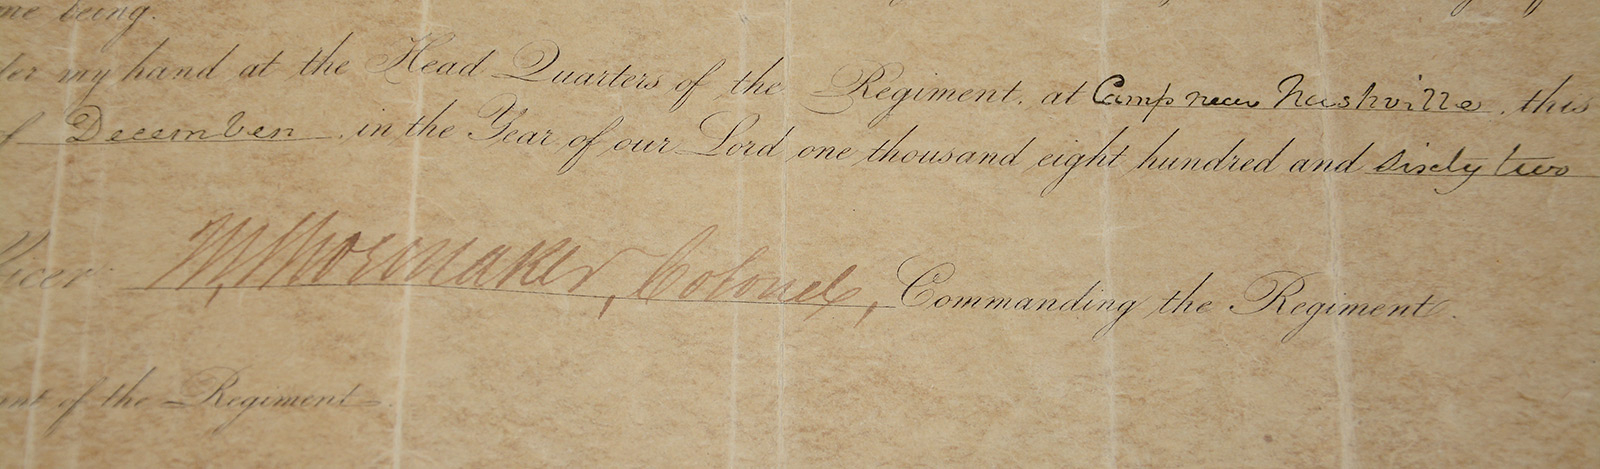 me being.
der my hand at the Head Quarters of the Regiment, at Camp near Nashville, this
of December in the Year of our Lord one thousand eight hundred and Sixty two
ficer M Shoemaker, Colonel, Commanding the Regiment.
ant of the Regiment.